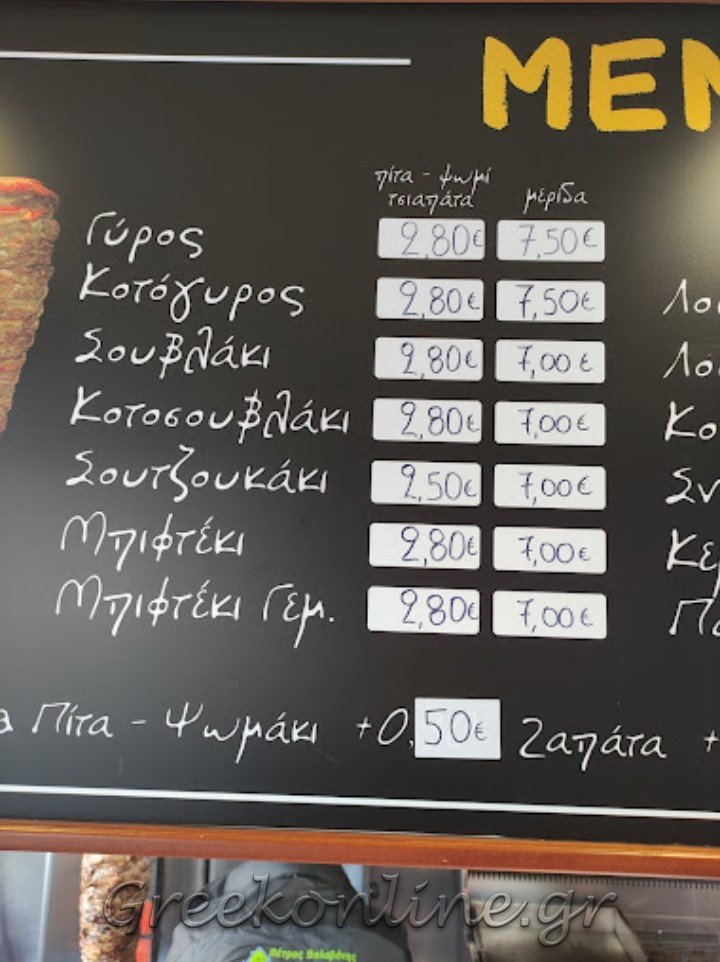 MEN
πίτα - ψωμί
τσιαπάτα
μερίδα
Γύρος 2,80€ 7,50€
Κοτόγυρος 2,80€ 7,50€ Λου
Σουβλάκι 2,80€ 7,00€ Λου
Κοτοσουβλάκι 2,80€ 7,00€ Κο
Σουτζουκάκι 2,50€ 7,00€ Συ
Μπιφτέκι 2,80€ 7,00€ Κε
Μπιφτέκι Γεμ. 2,80€ 7,00€
Πίτα - Ψωμάκι +0,50€ Ζαπάτα +
Greekonline.gr
Πέτρος Βαλαβάνης